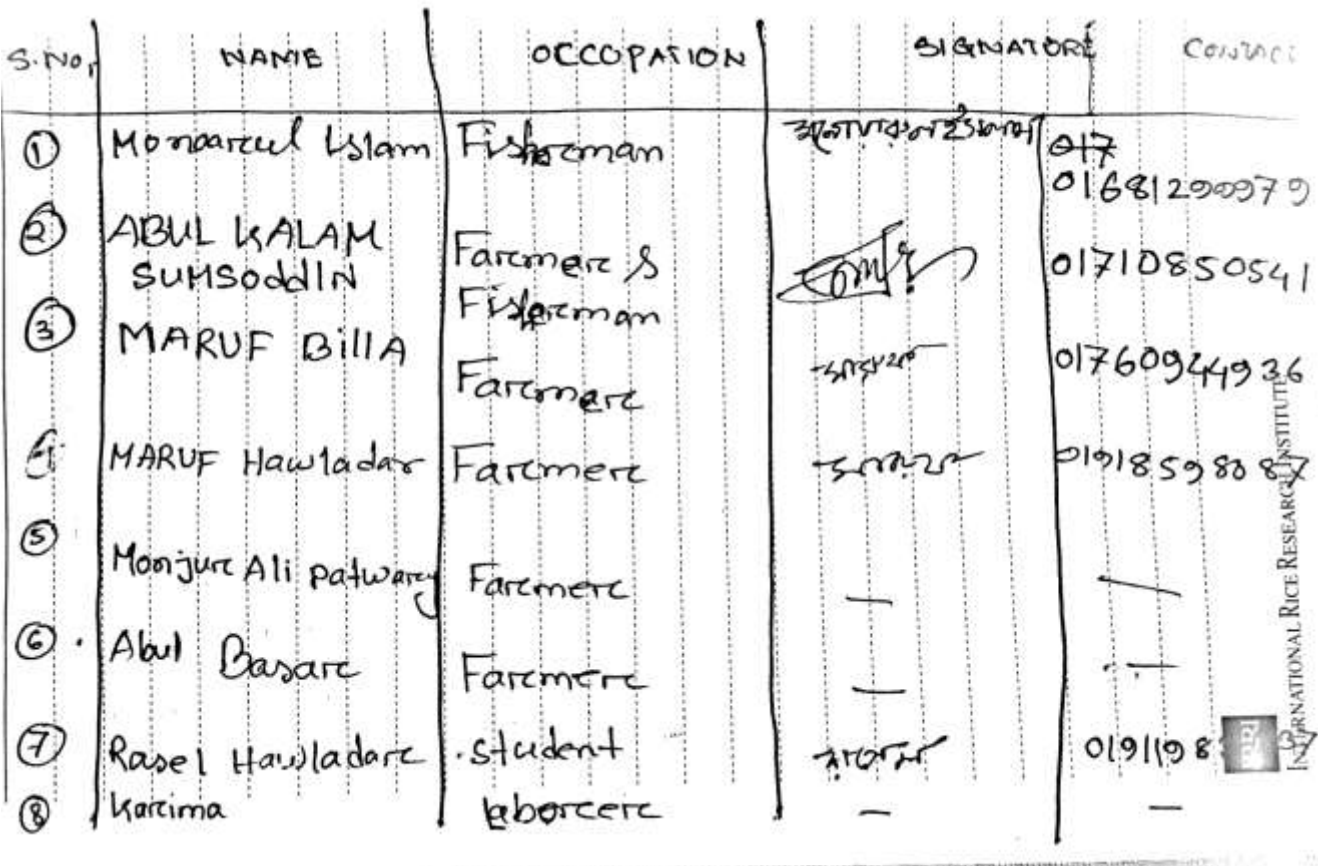 S.No. NAME OCCOPATION SIGNATORE CONTACT
① Monoarcul Islam Fishercman 017
01681290979
② ABUL KALAM Farcmerc & 01710850541
SUMSoddIN Fishercman
③ MARUF BillA Farcmerc 01760944936
4. MARUF Hawladar Farcmerc 01918598087
⑤ Monjurc Ali patwarcy Farcmerc — —
⑥ . Abul Basarc Farcmerc — —
⑦ Rasel Hawladarc student 0191198 37
⑧ Karcima laborcerc — —
IRRI
INTERNATIONAL RICE RESEARCH INSTITUTE